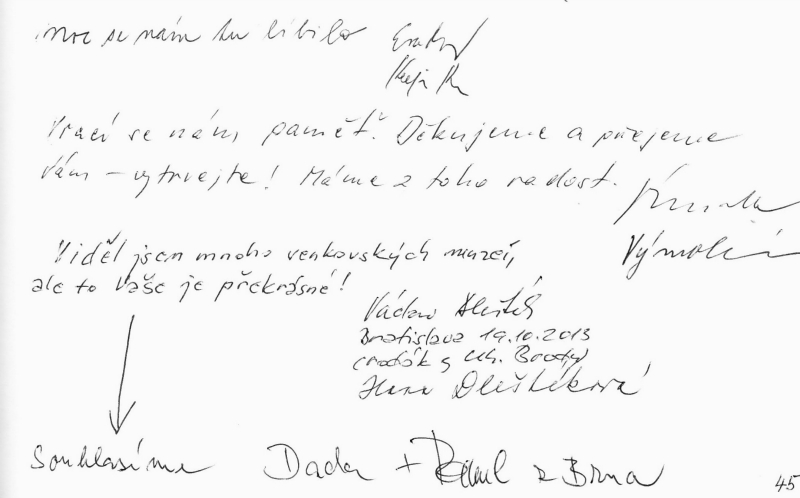 moc se nám tu líbilo
Vrací se nám paměť. Děkujeme a přejeme
Vám – vytrvejte! Máme z toho radost.
Viděl jsem mnoho venkovských muzeí,
ale to Vaše je překrásné!
Václav
Bratislava 19.10.2013
rodák z Uh. Brodu
Hana Oleštěková
Souhlasíme Dada + z Brna
45